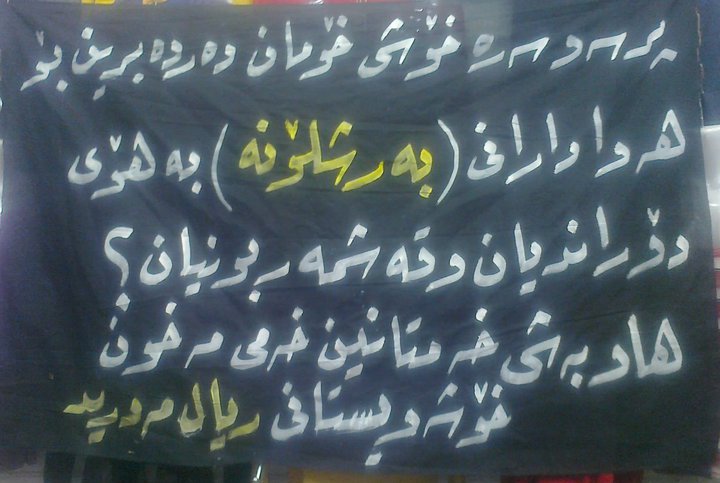 پرسه و سه ره خۆشی خۆمان ده رده برین بۆ
هه وادارانی (به رشلۆنه) به هۆی
دۆڕاندیان و قه شمه ر بونیان؟
هاو به شی خه متانین خه می مه خون
خۆشه ویستانی ریال مه درید